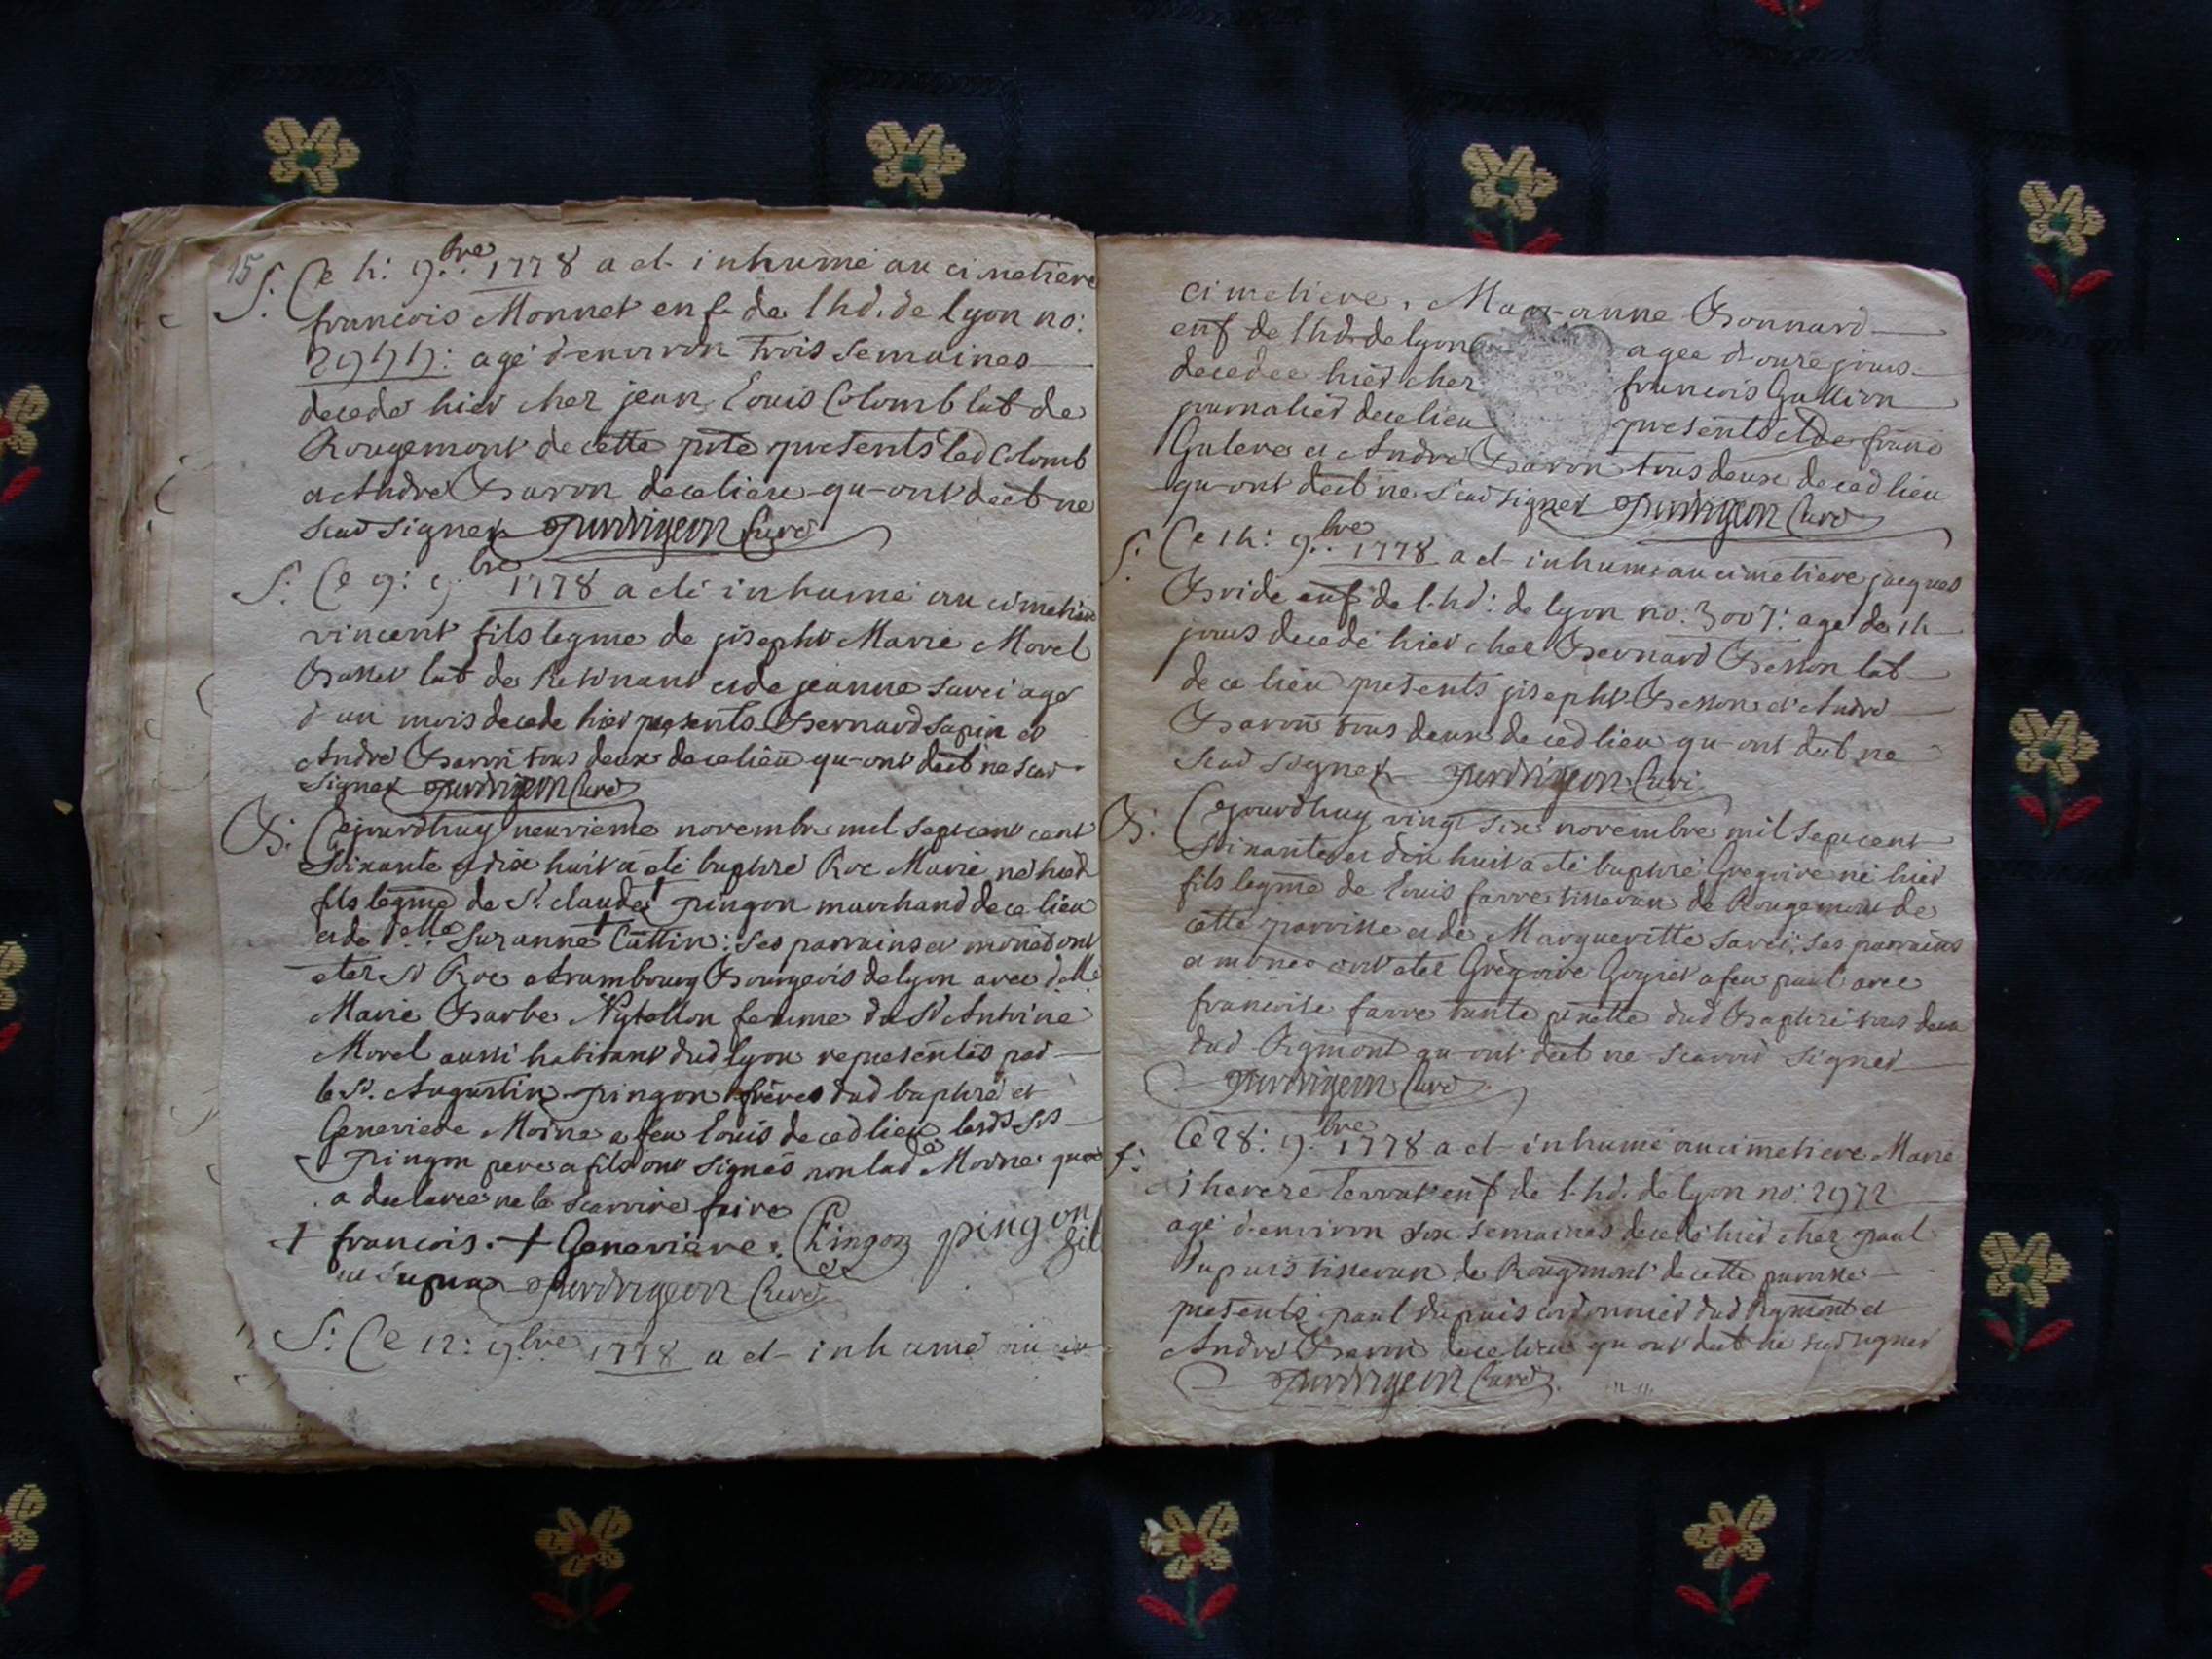 15
S. Ce 4: 9.bre 1778 a et inhumé au cimetiere
francois Monnet enf de lhd. de lyon no:
agé denviron trois semaines
decedé hier chez jean Louis Colomb lab de
Rougemont de cette pssè presents led Colomb
et André Baron de ce lieu qu-ont declt ne
scav signer Perdrigeon Curé
S. Ce 9: 9bre 1778 a eté inhumé au cimetiere
vincent fils legme de joseph Marie Morel
labr de et de jeanne Savei agé
d'un mois decedé hier presents Bernard Sapin et
André Baron tous deux de ce lieu qu-ont declt ne scav
signer Perdrigeon Curé
B: Cejourdhuy neuvieme novembre mil sept cent
soixante et dix huit a eté baptisé Roc Marie né hier
fils legme de Sr. claude + pingon marchand de ce lieu
et de delle Suzanne + Cattin: ses parrains et mones ont
etez Sr Roc Arambourg Bourgeois de lyon avec delle
Marie Barbe femme du Sr Antoine
Morel aussi habitant dud lyon representés par
le Sr. Augustin pingon freres dud baptisé et
Genevieve Moine a feu Louis de ced lieu lesds Srs
pingon pere et fils ont signés non lad Moine qui
a declaree ne le scavoire faire
+ francois. + Genevieve. Pingon pingon fil
ut supra Perdrigeon Curé
S: Ce 12: 9.bre 1778 a et inhumé au
cimetiere, Marianne Bonnard
enf de lhd. de lyon agee d'onze jours
decedee hier chez francois Gallion
journalier de ce lieu presents
Galere et André Baron tous deux de ced lieu
qu-ont declt ne scav signer Perdrigeon Curé
S. Ce 14: 9.bre 1778 a et inhumé au cimetiere jacques
Bride enf de l.hd: de lyon no: 3007: agé de 14
jours decedé hier chez Bernard Besson lab
de ce lieu presents joseph Besson et André
Baron tous deux de ced lieu qu-ont declt ne
scav signer Perdrigeon Curé
B. Cejourdhuy vingt six novembre mil sept cent
soixante et dix huit a eté baptisé Gregoire né hier
fils legme de Louis farre tisseran de Rougemont de
cette parroisse et de Margueritte Savei; ses parrains
et mones ont etez Gregoire Goyiet a feu paul avec
francoise farre tante dud Baptisé tous deux
dud Rgmont qu-ont declt ne scavoir signer
Perdrigeon Curé
S: Ce 28: 9.bre 1778 a et inhumé au cimetiere Marie
therese enf de l.hd. de lyon no: 2972
agé d'environ six semaines decedé hier chez paul
Dupuis tisseran de Rougmont de cette paroisse
presents paul Dupuis cordonnier dud Rgmont et
André Baron de ce lieu qu ont declt ne scav signer
Perdrigeon Curé